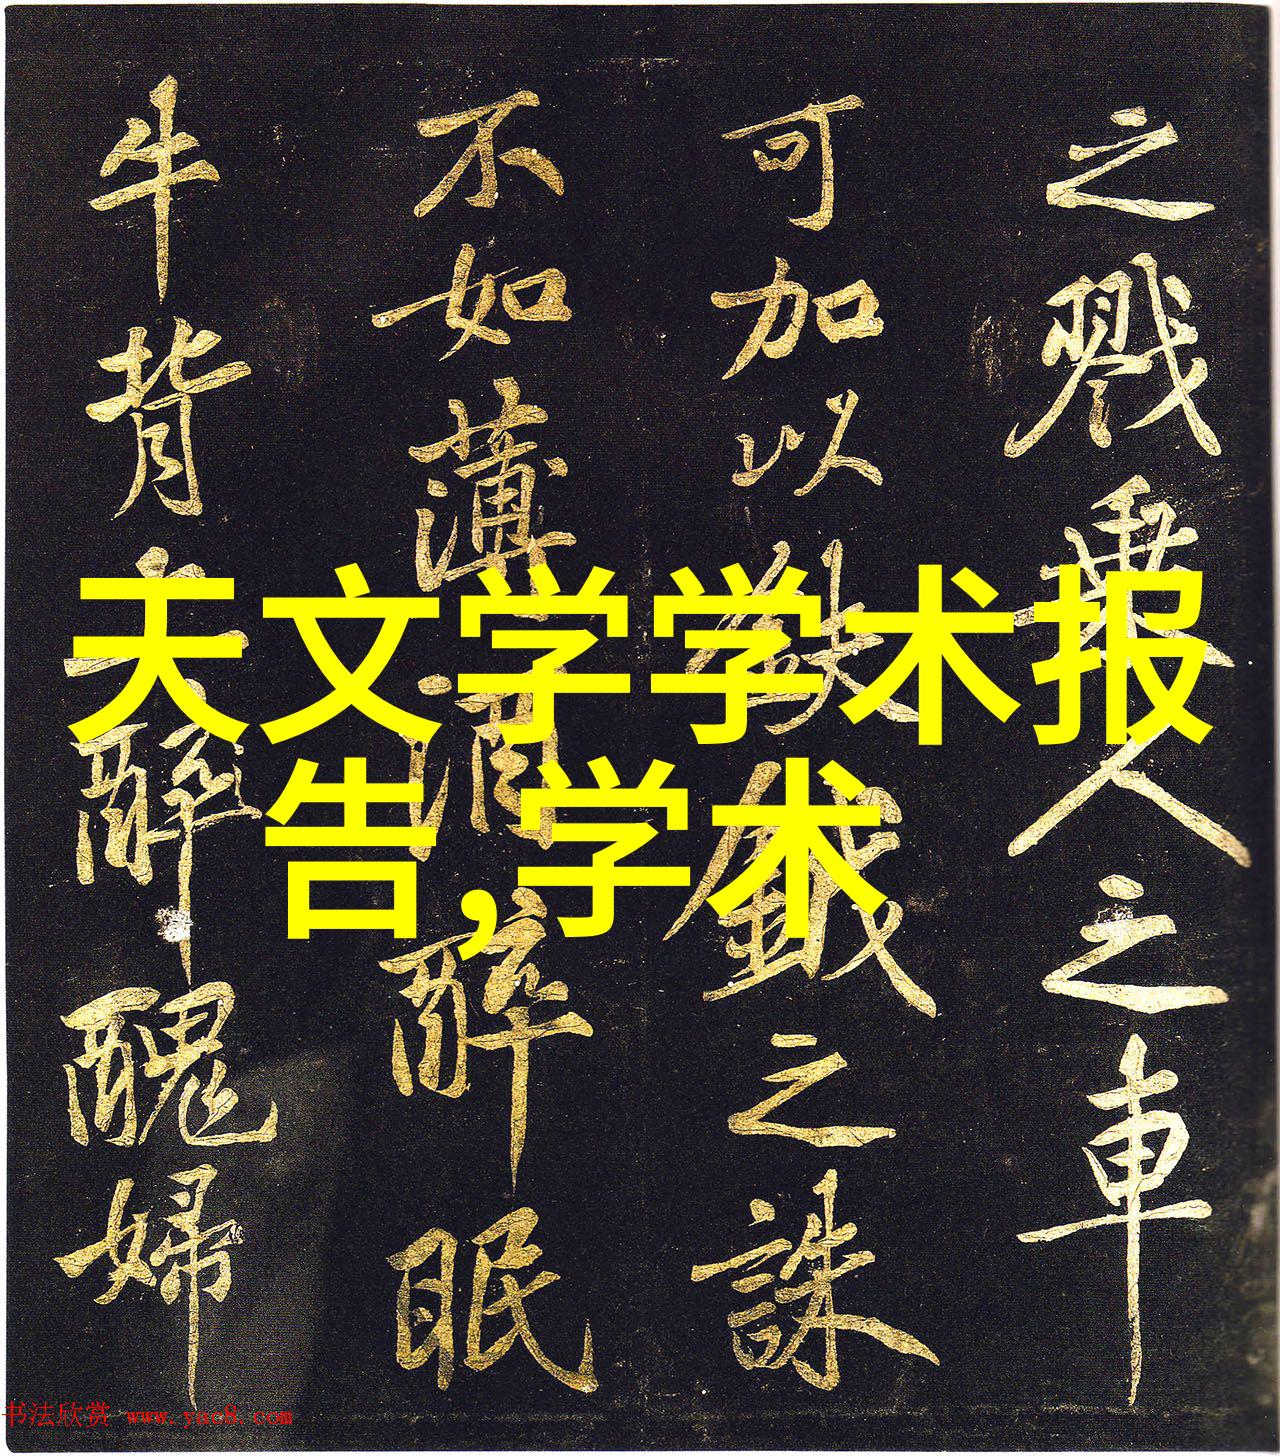 天文学学术报
告,学术
之戮乘人之車
可加以鈇鉞之誅
不如薄酒醉眠
牛背上醉醜婦
书法欣赏 www.yac8.com